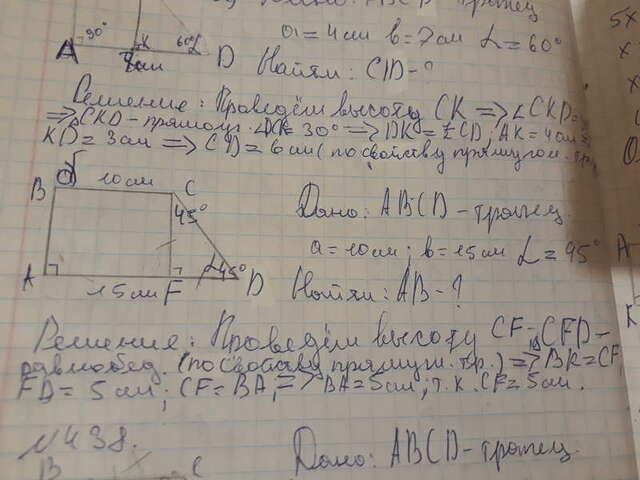 Дано: ABCD - трапец.
a = 4 см b = 7 см L = 60°
90° K 60°
A 7 см D
Найти: CD - ?
Решение: Проведём высоту CK => ∠CKD =
=> CKD - прямоуг. ∠DCK = 30° => DK = ½ CD; AK = 4 см =>
KD = 3 см => CD = 6 см (по свойству прямугол. тр.)
B 10 см C
45°
A 15 см F L 45° D
Дано: ABCD - трапец.
a = 10 см; b = 15 см L = 45°
Найти: AB - ?
Решение: Проведём высоту CF; CFD -
равнобед. (по свойству прямуг. тр.) => BK = CF
FD = 5 см; CF = BA, => BA = 5 см, т.к. CF = 5 см.
№438.
B C
Дано: ABCD - трапец.
5x
x
x
A
K